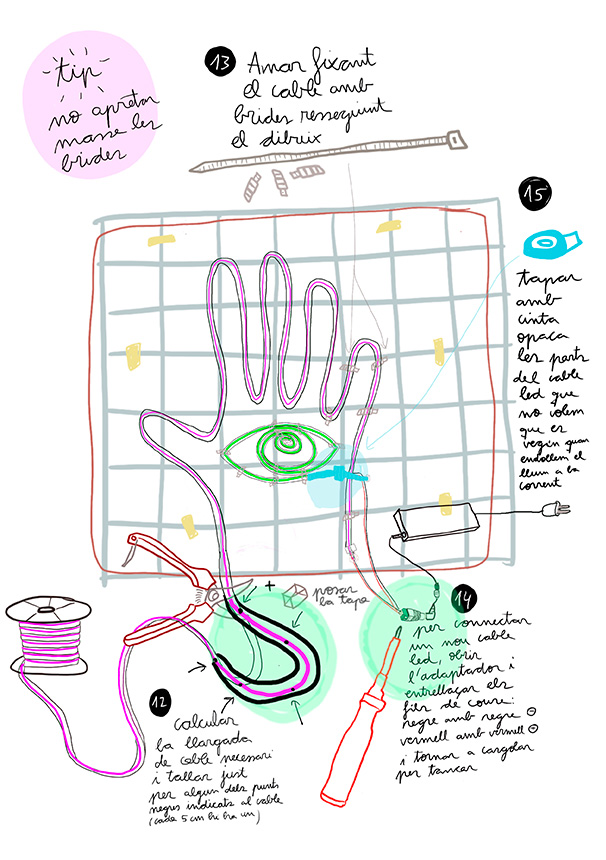 tip
no apretar
massa les
brides
13 Anar fixant
el cable amb
brides resseguint
el dibuix
15
tapar
amb
cinta
opaca
les parts
del cable
led que
no volem
que es
vegin quan
endollem el
llum a la
corrent
+
posar
la tapa
14
per connectar
un nou cable
led, obrir
l'adaptador i
entrellaçar els
fils de coure:
negre amb negre ⊖
vermell amb vermell ⊖
i tornar a cargolar
per tancar
12
calcular
la llargada
de cable necessari
i tallar just
per algun dels punts
negres indicats al cable
(cada 5 cm hi ha un)